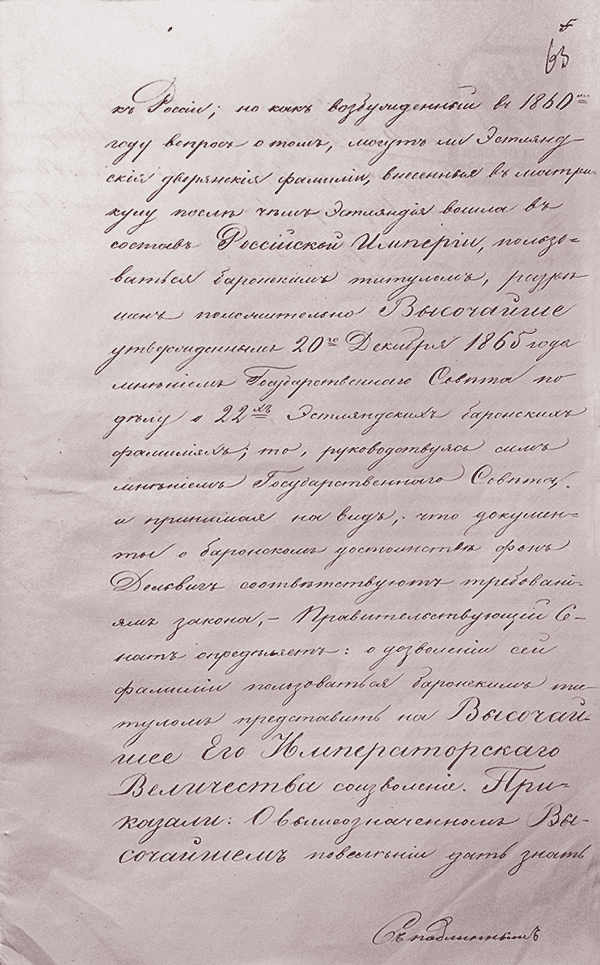 63
къ Россіи; но какъ возбужденный въ 1860мъ
году вопросъ о томъ, могутъ ли Эстлянд-
скія дворянскія фамиліи, внесенныя въ матри-
кулу послѣ чѣмъ Эстляндія вошла въ
составъ Россійской Имперіи, пользо-
ваться баронскимъ титуломъ, разрѣ
шенъ положительно Высочайше
утвержденнымъ 20го Декабря 1865 года
мнѣніемъ Государственнаго Совѣта по
дѣлу о 22хъ Эстляндскихъ баронскихъ
фамиліяхъ; то, руководствуясь симъ
мнѣніемъ Государственнаго Совѣта,
и принимая на видъ, что докумен-
ты о баронскомъ достоинствѣ фонъ
Дельвигъ соотвѣтствуютъ требовані-
ямъ закона, – Правительствующій Се-
натъ опредѣляетъ: о дозволеніи сей
фамиліи пользоваться баронскимъ ти-
туломъ представить на Высочай-
шее Его Императорскаго
Величества соизволеніе. При-
казали: О вышеозначенномъ Вы-
сочайшемъ повелѣніи дать знать
Съ подлиннымъ